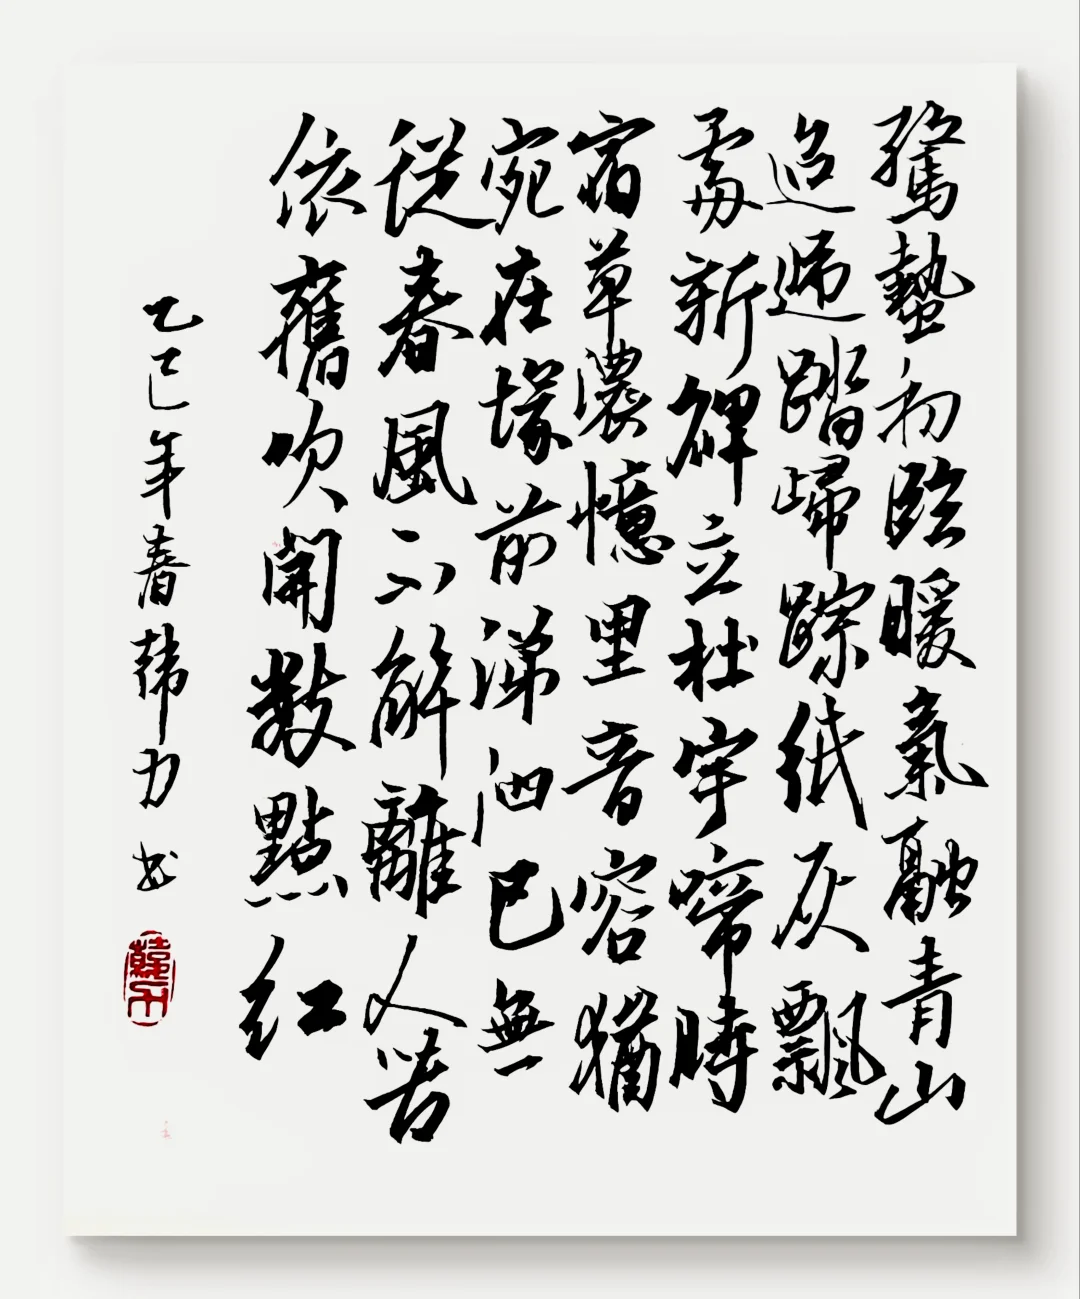 驚蟄初臨暖氣融青山
迢遞踏歸踪紙灰飄
處新碑立杜宇啼時
宿草濃憶里音容猶
宛在塚前涕泗已無
從春風不解離人苦
依舊吹開數點紅
乙巳年春韩力书